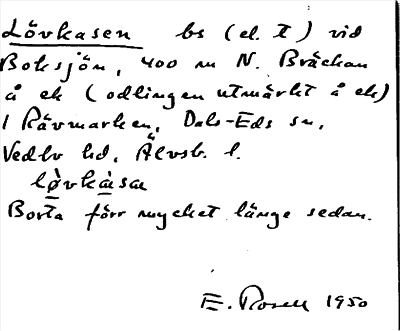 Lövkasen bs (el. t) vid
Boksjön, 400 m N. Bräckan
å ek (odlingen utmärkt å ek)
/ Rävmarken, Dals-Eds sn,
Vedbo hd, Älvsb. l.
lø̀vkàsa
Borta förr mycket länge sedan.
E. Rosell 1950